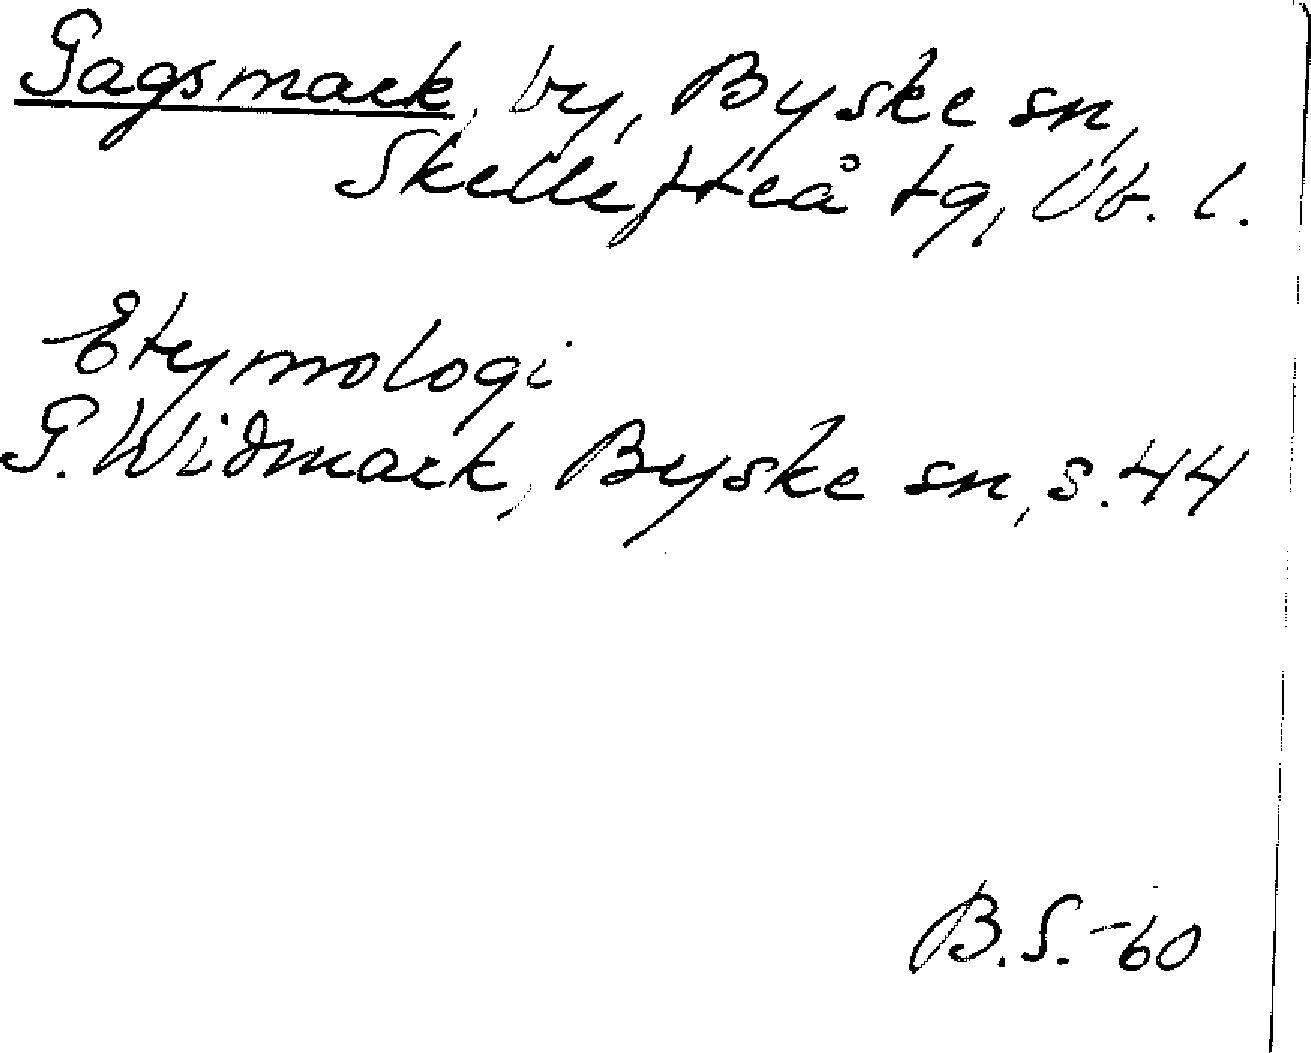 Gagsmark, by, Byske sn,
Skellefteå tg, Vb. l.
Etymologi
G. Widmark, Byske sn, s. 44
B.S. -60